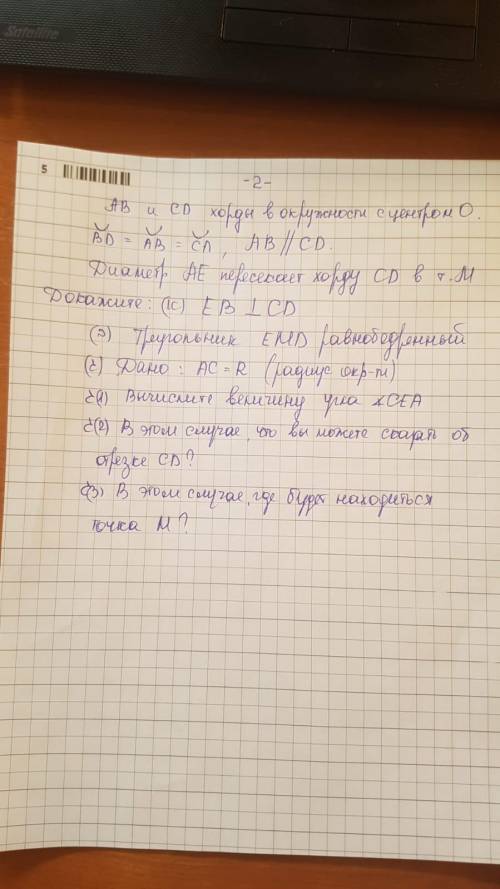 Satellite
5
-2-
AB и CD хорды в окружности с центром O.
BD = AB = CA, AB // CD.
Диаметр AE пересекает хорду CD в т. M
Докажите: (1c) EB ⊥ CD
(ə) Треугольник EMD равнобедренный
(č) Дано: AC = R (радиус окр-ти)
č(1) Вычислите величину угла ∢CEA
č(2) В этом случае, что вы можете сказать об
отрезке CD?
č(3) В этом случае, где будет находиться
точка M?